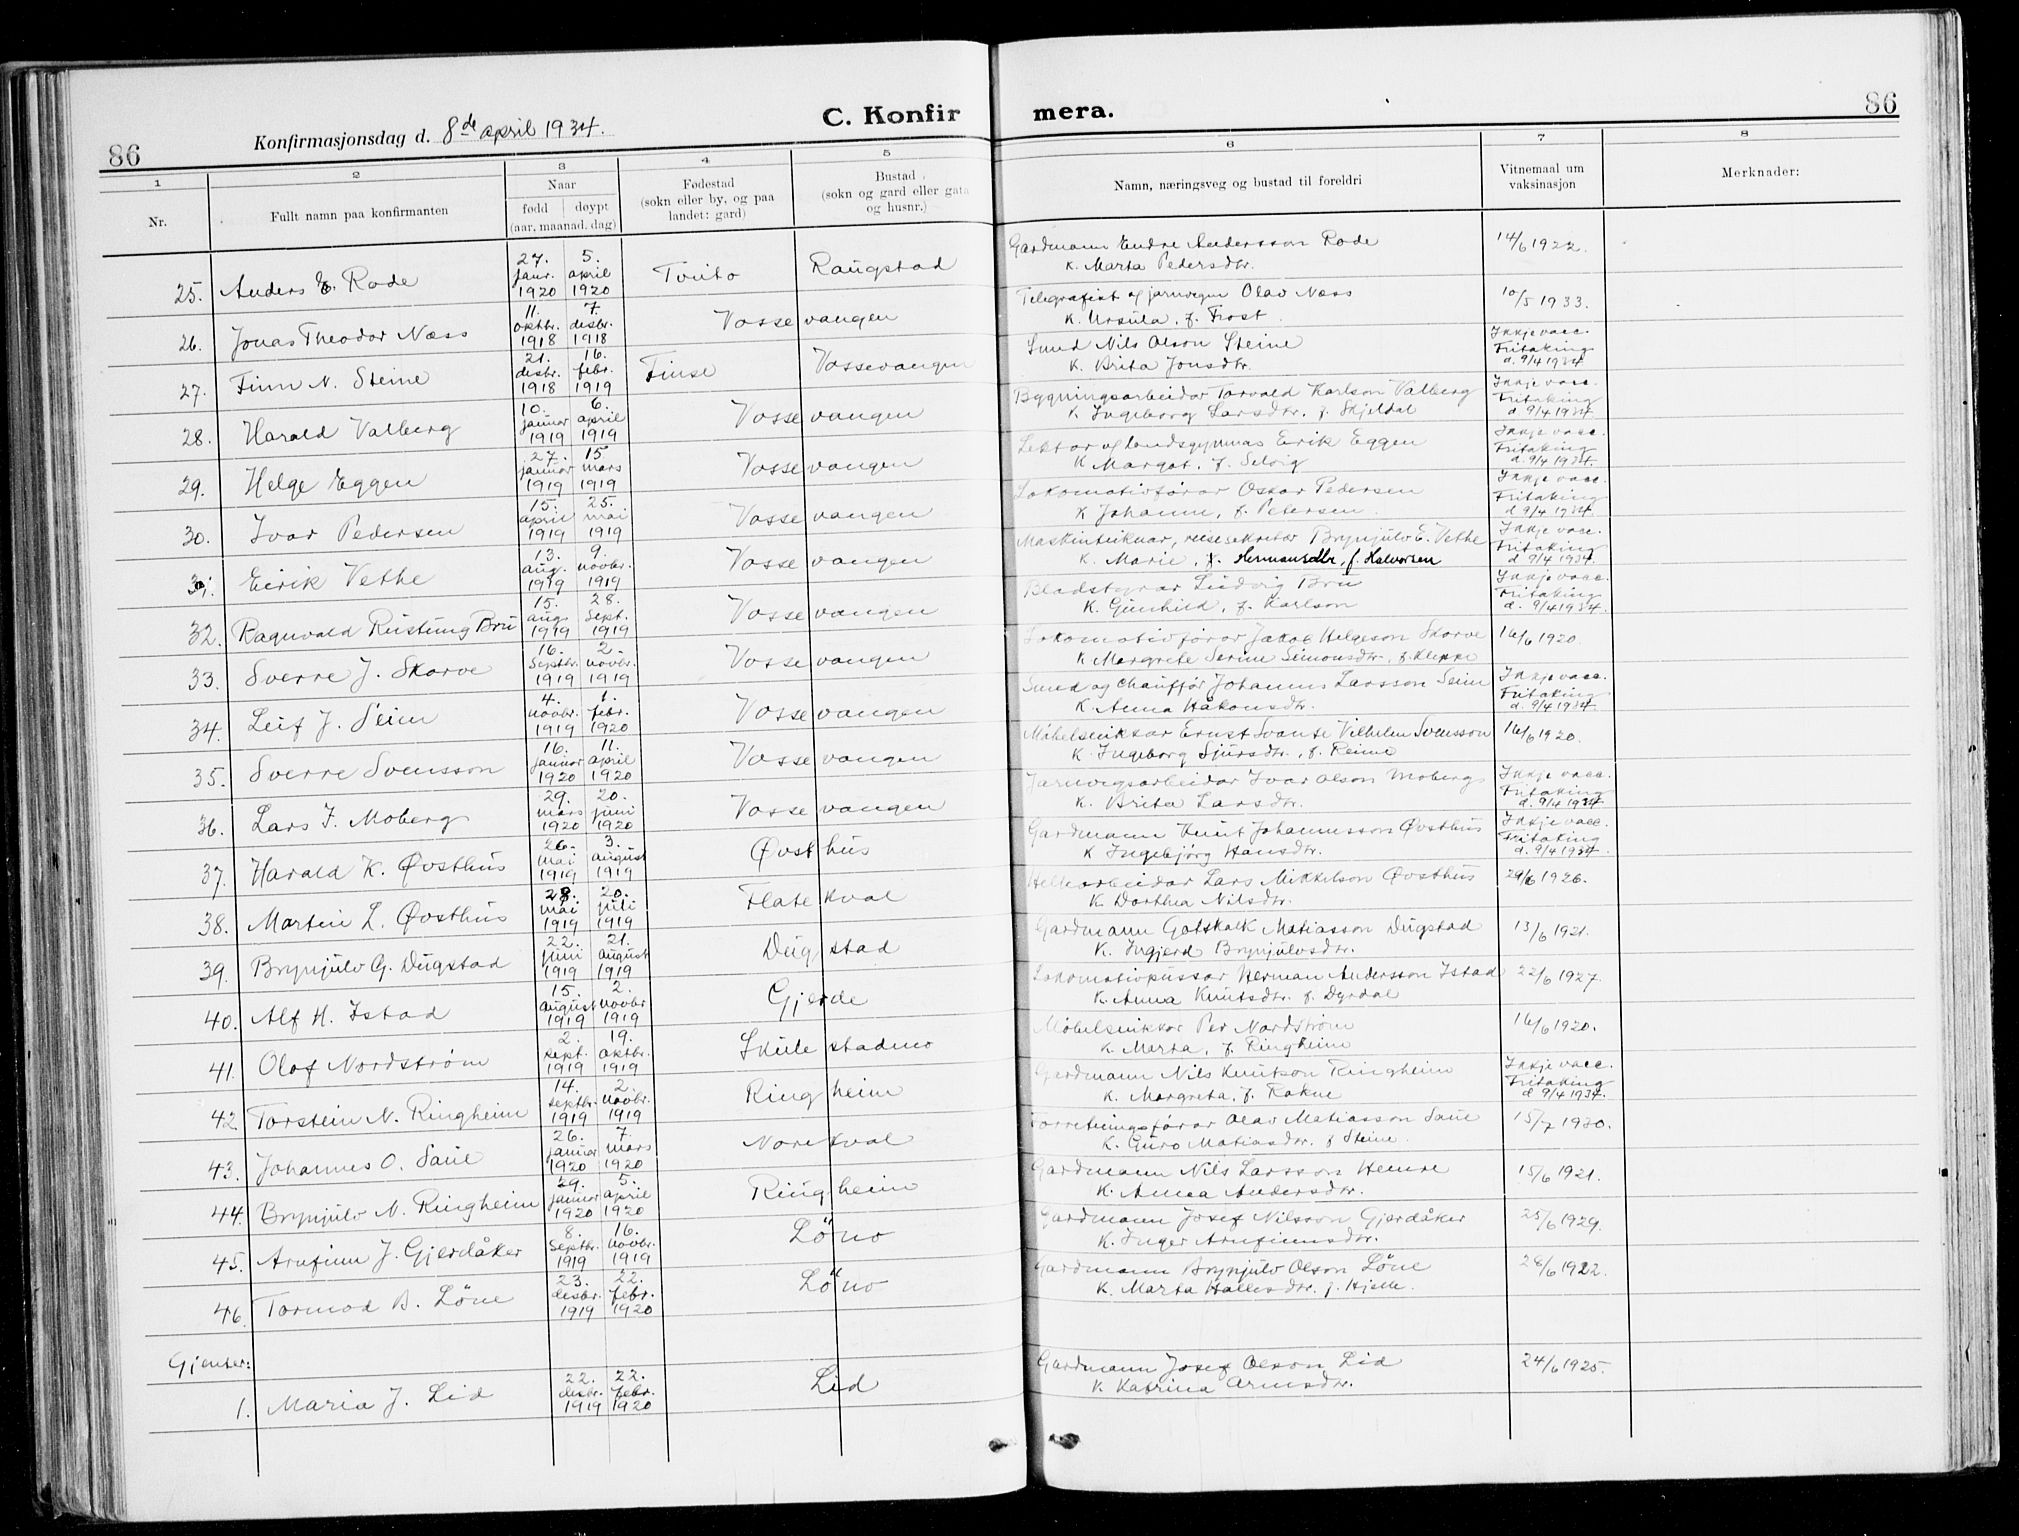 86
Konfirmasjonsdag d. 8de april 1934.
C. Konfirmera.
86
1 2 3 4 5 6 7 8
Nr.
Fullt namn paa konfirmanten
Naar
fødd døypt
(aar, maanad, dag)
Fødestad
(sokn eller by, og paa
landet: gard)
Bustad
(sokn og gard eller gata
og husnr.)
Namn, næringsveg og bustad til foreldri
Vitnemaal um
vaksinasjon
Merknader:
25. Anders E. Rode 27. janr. 1920 5. april 1920 Tvito Raugstad Gardmann Endre Andersson Rode 14/6 1922.
K. Marta Pedersdtr.
26. Jonas Theodor Næss 11. oktbr. 1918 7. desbr. 1918 Vossevangen Telegrafist og jarnvegen Olav Næss 10/5 1933.
K. Ursula, f. Frost
27. Finn N. Steine 21. desbr. 1918 16. febr. 1919 Finse Vossevangen Smed Nils Olson Steine Ikkje vacc.
K. Brita Jonsdtr. Fritaking d. 9/4 1934
28. Harald Valberg 10. januar 1919 6. april 1919 Vossevangen Bygningsarbeidar Torvald Karlson Valberg Ikkje vacc.
K Ingeborg Larsdtr. f. Skjeldal Fritaking d 9/4 1934.
29. Helge Eggen 27. januar 1919 15. mars 1919 Vossevangen Lektor og landsgymnas Erik Eggen Ikkje vacc.
K Margot, f. Selvig Fritaking d. 9/4 1934.
30. Ivar Pedersen 15. april 1919 25. mai 1919 Vossevangen Lokomotivførar Oskar Pedersen Ikkje vacc.
K Johanne, f. Petersen Fritaking d 9/4 1934.
31. Eirik Vethe 13. aug. 1919 9. novbr. 1919 Vossevangen Maskinteiknar, reisesekretær Brynjulv E. Vethe Ikkje vacc.
K. Marie, f. Hermansdtr, f. Halvorsen Fritaking d 9/4 1934.
32. Ragnvald Rustung Bru 15. aug. 1919 28. sept. 1919 Vossevangen Bladstyrar Ludvig Bru Ikkje vacc.
K. Gunhild, f. Karlson Fritaking d. 9/4 1934.
33. Sverre J. Skorve 16. septbr. 1919 2. novbr. 1919 Vossevangen Lokomotivførar Jakob Helgeson Skorve 16/6 1920.
K. Margrete Serine Simonsdtr. f. Kleppe
34. Leif J. Seim 4. novbr. 1919 1. febr. 1920 Vossevangen Smed og chauffør Johannes Larsson Seim Ikkje vacc.
K. Anna Håkonsdtr. Fritaking d. 9/4 1934.
35. Sverre Svensson 16. januar 1920 11. april 1920 Vossevangen Møbelsnikkar Ernst Svante Vilhelm Svensson 16/6 1920.
K. Ingeborg Sjursdtr., f. Reime
36. Lars I. Moberg 29. mars 1920 20. juni 1920 Vossevangen Jarnvegsarbeidar Ivar Olson Moberg Ikkje vacc.
K. Brita Larsdtr. Fritaking d. 9/4 1934
37. Harald K. Øvsthus 26. mai 1919 3. august 1919 Øvsthus Gardmann Knut Johannesson Øvsthus Ikkje vacc.
K Ingebjørg Hansdtr. Fritaking d. 9/4 1934.
38. Martin L. Øvsthus 28. mai 1919 20. juli 1919 Flatekval Hellearbeidar Lars Mikkelson Øvsthus 29/6 1926.
K. Dorthea Nilsdtr.
39. Brynjulv G. Dugstad 22. juni 1919 21. august 1919 Dugstad Gardmann Gotskalk Matiasson Dugstad 13/6 1921.
K. Ingjerd Brynjulvsdtr.
40. Alf H. Istad 15. august 1919 2. novbr 1919 Gjerde Lokomotivpussar Herman Andersson Istad 22/6 1927.
K. Anna Knutsdtr. f. Dyrdal
41. Olof Nordstrøm 2. sept. 1919 19. oktbr. 1919 Skulestadmo Møbelsnikkar Per Nordstrøm 16/6 1920.
K. Marta, f. Ringheim
42. Torstein N. Ringheim 14. septbr. 1919 2. novbr. 1919 Ringheim Gardmann Nils Knutson Ringheim Ikkje vacc.
K. Margreta, f. Rokne Fritaking d 9/4 1934.
43. Johannes O. Saue 26. januar 1920 7. mars 1920 Norekval Forretningsførar Olav Matiasson Saue 15/7 1930.
K. Guro Matiasdtr. f Steine.
44. Brynjulv N. Ringheim 29. januar 1920 5. april 1920 Ringheim Gardmann Nils Larsson Hemre 15/6 1921.
K. Anna Andersdtr.
45. Arnfinn J. Gjerdåker 8. Septbr. 1919 16. novbr. 1919 Löno Gardmann Josef Nilsson Gjerdåker 25/6 1929.
K. Inger Arnfinnsdtr.
46. Tormod B. Löne 23. desbr. 1919 22. febr. 1920 Löno Gardmann Brynjulv Olson Löne 28/6 1922.
K. Marta Hallesdtr. f. Hjelle.
Gjenter:
1. Maria J. Lid 22. desbr. 1919 22. febr. 1920 Lid Gardmann Josef Olson Lid 24/6 1925.
K Katrina Arnesdtr.